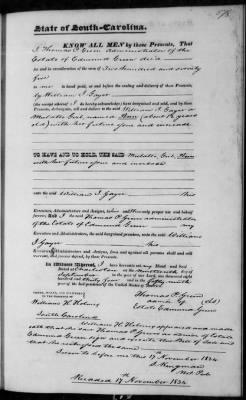 State of South-Carolina.
KNOW ALL MEN by these Presents, That
I Thomas P Green Administrator of the
Estate of Edmund Green dec'd
for and in consideration of the sum of Two Hundred and seventy
five
to me in hand paid, at and before the sealing and delivery of these Presents,
by William I Gayer
(the receipt whereof I do hereby acknowledge) have bargained and sold, and by these
Presents, do bargain, sell and deliver to the said William I Gayer a
Mulatto Girl named (about
old) with her future issue and increase
TO HAVE AND TO HOLD, THE SAID Mulatto Girl
with her future issue and increase
unto the said William I Gayer his
Executors, Administrators and Assigns, to his and their only proper use and behoof
forever. And I the said Thomas P Green administrator
of the Estate of Edmund Green my
Executors and Administrators, the said bargained premises, unto the said William
I Gayer his
Executors, Administrators and Assigns, from and against all persons shall and will
warrant, and forever defend, by these Presents.
In Witness Whereof, I have hereunto set my Hand and Seal
Dated at Charleston on the
in the year of our Lord one thousand eight
hundred and thirty four and in the fifty ninth
year of the Independence of the United States of America.
SIGNED, SEALED, AND DELIVERED
IN THE PRESENCE OF
Thomas P Green (LS)
William H Holmes
Estate Edmund Green
South Carolina
William H. Holmes appeared and made
oath that he saw Thomas P Green as of Estate
Edmund Green sign and execute the Bill of Sale and
that he
Sworn to before me the 17 November 1834
Recorded 17th November 1834